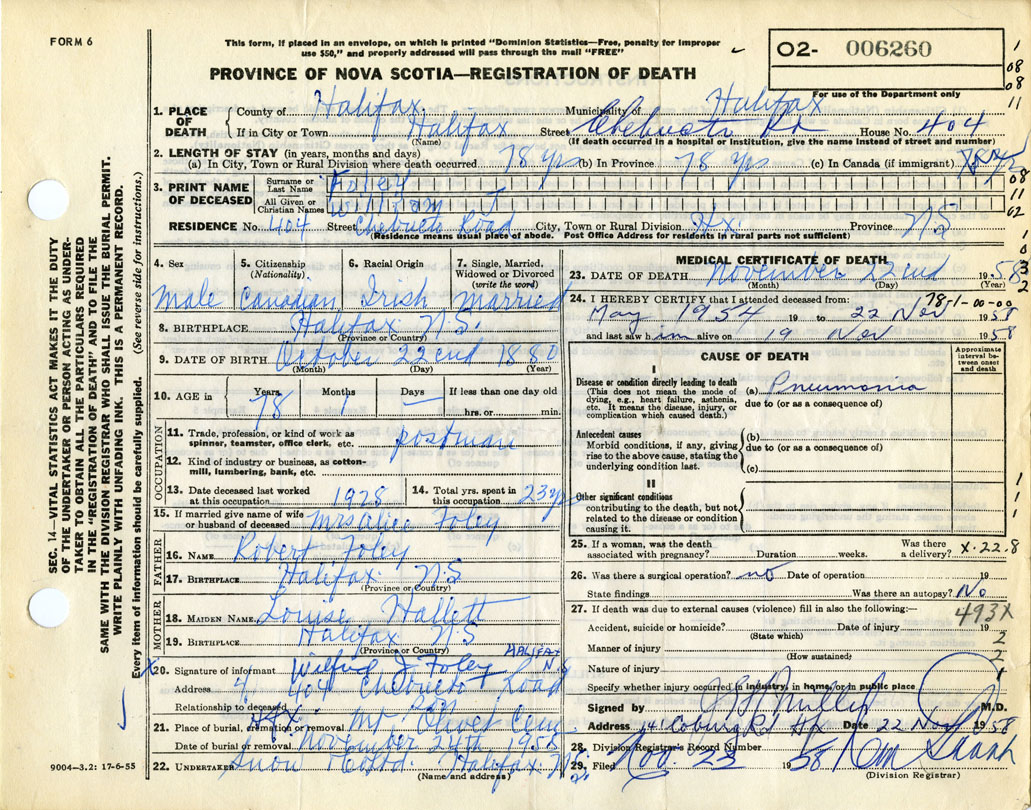 FORM 6
This form, if placed in an envelope, on which is printed "Dominion Statistics—Free, penalty for improper
use $50," and properly addressed will pass through the mail "FREE"
O2- 006260
For use of the Department only
PROVINCE OF NOVA SCOTIA—REGISTRATION OF DEATH
1. PLACE OF DEATH County of Halifax Municipality of Halifax
If in City or Town Halifax Street Chebucto Rd House No. 404
(Name) (If death occurred in a hospital or institution, give the name instead of street and number)
2. LENGTH OF STAY (in years, months and days)
(a) In City, Town or Rural Division where death occurred 78 yrs (b) In Province 78 yrs (c) In Canada (if immigrant)
3. PRINT NAME OF DECEASED Surname or Last Name Foley
All Given or Christian Names William J
RESIDENCE No. 404 Street Chebucto Road City, Town or Rural Division Hx. Province N.S
(Residence means usual place of abode. Post Office Address for residents in rural parts not sufficient)
4. Sex 5. Citizenship (Nationality). 6. Racial Origin 7. Single, Married, Widowed or Divorced (write the word)
Male Canadian Irish Married
8. BIRTHPLACE Halifax N.S.
(Province or Country)
9. DATE OF BIRTH October 22cnd 1880
(Month) (Day) (Year)
10. AGE in Years 78 Months 1 Days — If less than one day old
hrs. or min.
OCCUPATION
11. Trade, profession, or kind of work as spinner, teamster, office clerk, etc. postman
12. Kind of industry or business, as cotton-mill, lumbering, bank, etc.
13. Date deceased last worked at this occupation 1928 14. Total yrs. spent in this occupation 23 yrs
15. If married give name of wife or husband of deceased Mrs Alice Foley
FATHER
16. NAME Robert Foley
17. BIRTHPLACE Halifax N.S
(Province or Country)
MOTHER
18. MAIDEN NAME Louise Hallett
19. BIRTHPLACE Halifax N.S
(Province or Country)
20. Signature of informant Wilfrid J. Foley HALIFAX N.S
Address 404 Chebucto Road
Relationship to deceased Son
21. Place of burial, cremation or removal Hfx. Mt Olivet Cem
Date of burial or removal November 24th 1958
22. UNDERTAKER Snow & Co Ltd. Halifax N.S.
(Name and address)
9004—3.2: 17-6-55
MEDICAL CERTIFICATE OF DEATH
23. DATE OF DEATH November 22cnd 1958
(Month) (Day) (Year)
24. I HEREBY CERTIFY that I attended deceased from: 78-1-00-00
May 1954 19 to 22 Nov 1958
and last saw him alive on 19 Nov 1958
CAUSE OF DEATH
Approximate interval between onset and death
I
Disease or condition directly leading to death
(This does not mean the mode of dying, e.g., heart failure, asthenia, etc. It means the disease, injury, or complication which caused death.)
(a) Pneumonia
due to (or as a consequence of)
Antecedent causes
Morbid conditions, if any, giving rise to the above cause, stating the underlying condition last.
(b)
due to (or as a consequence of)
(c)
II
Other significant conditions
contributing to the death, but not related to the disease or condition causing it.
25. If a woman, was the death associated with pregnancy? Duration weeks. Was there a delivery? X.22.8
26. Was there a surgical operation? no Date of operation 19
State findings Was there an autopsy? No
27. If death was due to external causes (violence) fill in also the following:— 493X
Accident, suicide or homicide? Date of injury 19
(State which)
Manner of injury
(How sustained)
Nature of injury
Specify whether injury occurred in industry, in home, or in public place
Signed by M.D.
Address 141 Coburg Rd Hfx Date 22 Nov 1958
28. Division Registrar's Record Number
29. Filed Nov. 23 1958
(Division Registrar)
SEC. 14—VITAL STATISTICS ACT MAKES IT THE DUTY
OF THE UNDERTAKER OR PERSON ACTING AS UNDER-
TAKER TO OBTAIN ALL THE PARTICULARS REQUIRED
IN THE "REGISTRATION OF DEATH" AND TO FILE THE
SAME WITH THE DIVISION REGISTRAR WHO SHALL ISSUE THE BURIAL PERMIT.
WRITE PLAINLY WITH UNFADING INK. THIS IS A PERMANENT RECORD.
Every item of information should be carefully supplied. (See reverse side for instructions.)